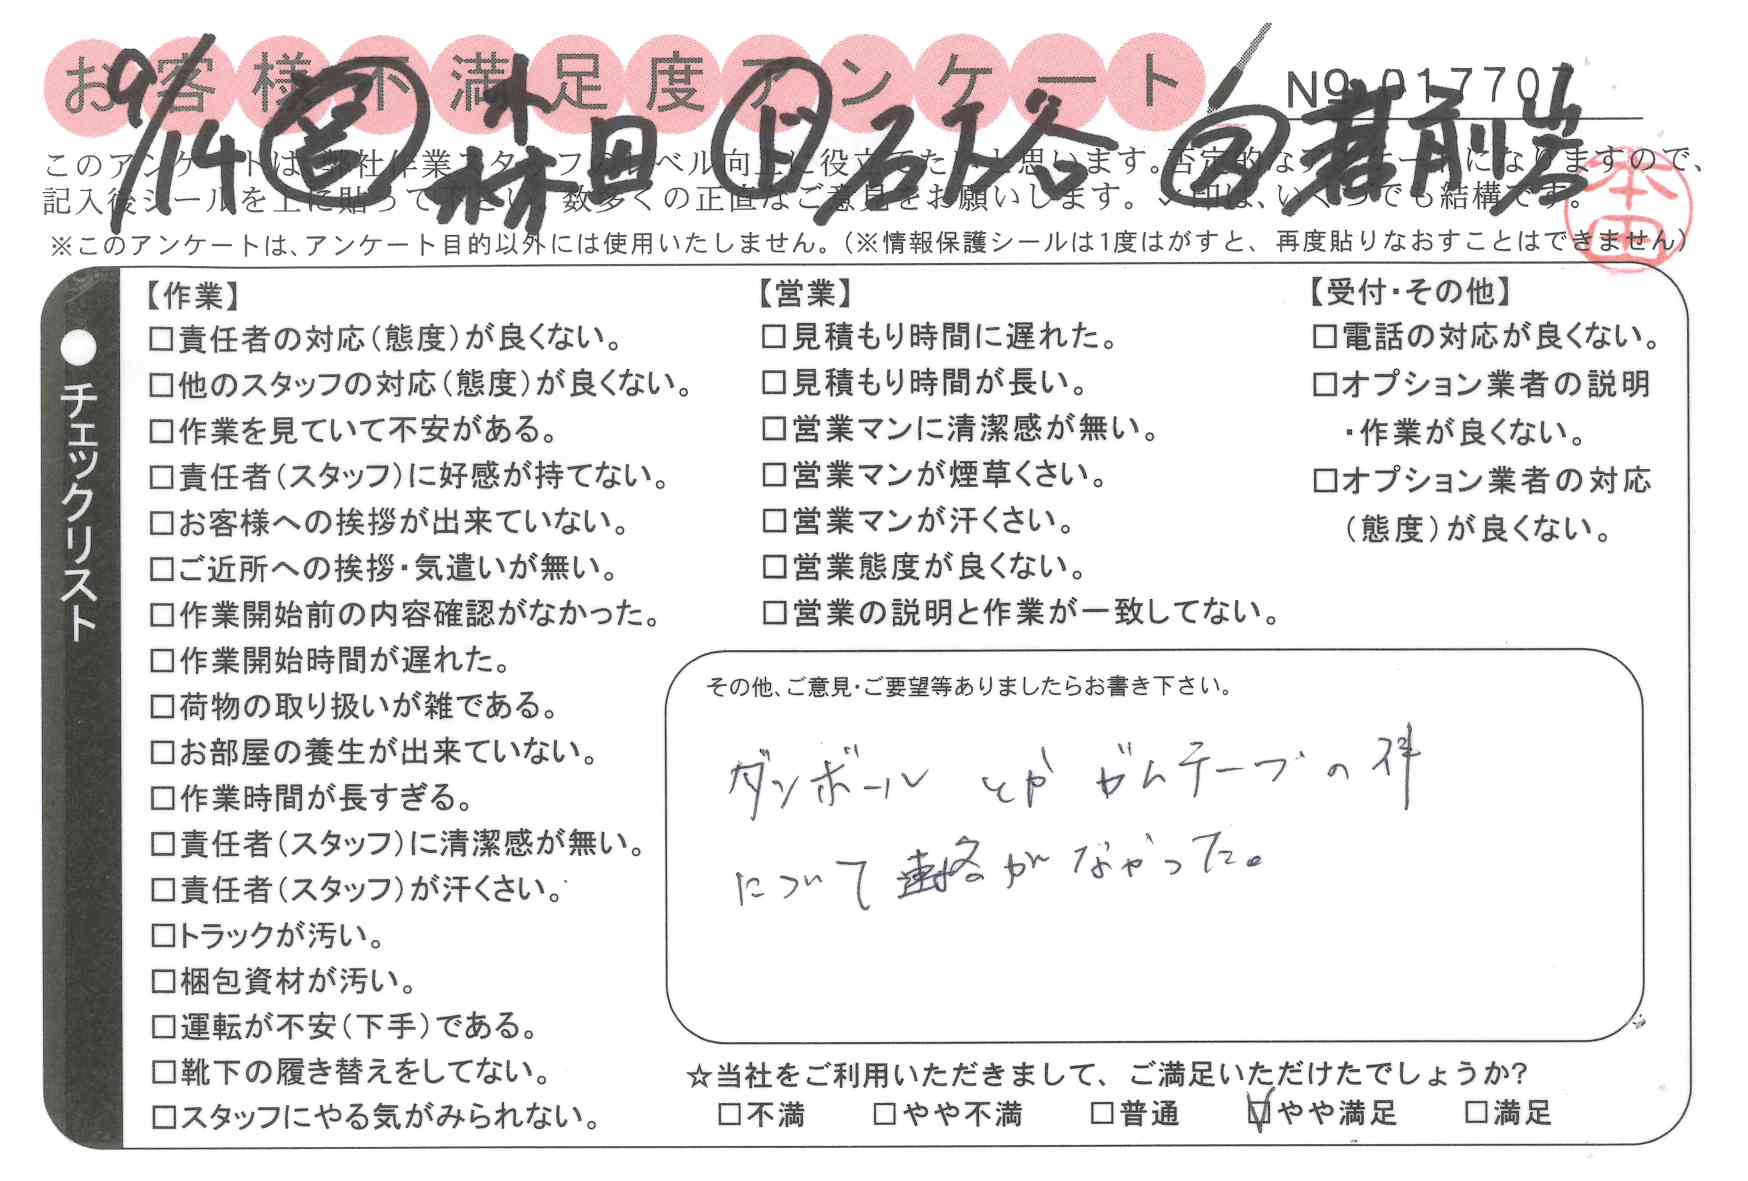 お客様不満足度アンケート
No 017707
9/14 営 林田 ド 石谷
このアンケートは、弊社作業スタッフのレベル向上に役立てたいと思います。否定的なアンケートになりますので、
記入後シールを上に貼って下さい。数多くの正直なご意見をお願いします。✓印は、いくつでも結構です。
本田
※このアンケートは、アンケート目的以外には使用いたしません。(※情報保護シールは1度はがすと、再度貼りなおすことはできません)
●チェックリスト
【作業】
□責任者の対応(態度)が良くない。
□他のスタッフの対応(態度)が良くない。
□作業を見ていて不安がある。
□責任者(スタッフ)に好感が持てない。
□お客様への挨拶が出来ていない。
□ご近所への挨拶・気遣いが無い。
□作業開始前の内容確認がなかった。
□作業開始時間が遅れた。
□荷物の取り扱いが雑である。
□お部屋の養生が出来ていない。
□作業時間が長すぎる。
□責任者(スタッフ)に清潔感が無い。
□責任者(スタッフ)が汗くさい。
□トラックが汚い。
□梱包資材が汚い。
□運転が不安(下手)である。
□靴下の履き替えをしてない。
□スタッフにやる気がみられない。
【営業】
□見積もり時間に遅れた。
□見積もり時間が長い。
□営業マンに清潔感が無い。
□営業マンが煙草くさい。
□営業マンが汗くさい。
□営業態度が良くない。
□営業の説明と作業が一致してない。
【受付・その他】
□電話の対応が良くない。
□オプション業者の説明
・作業が良くない。
□オプション業者の対応
(態度)が良くない。
その他、ご意見・ご要望等ありましたらお書き下さい。
ダンボールとかガムテープの件
について連絡がなかった。
☆当社をご利用いただきまして、ご満足いただけたでしょうか?
□不満 □やや不満 □普通 ☑やや満足 □満足